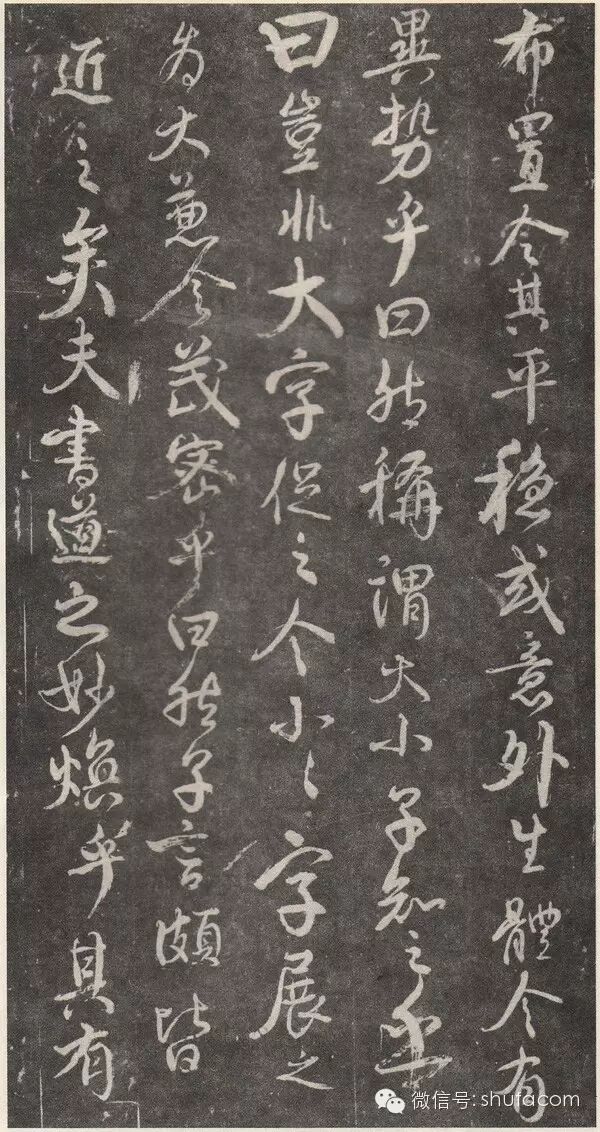 布置令其平穩或意外生體令有
異勢乎曰然稱謂大小子知之乎
曰豈非大字促之令小〻字展之
為大兼令茂密乎曰然子言頗皆
近之矣夫書道之妙煥乎其有
微信号: shufacom